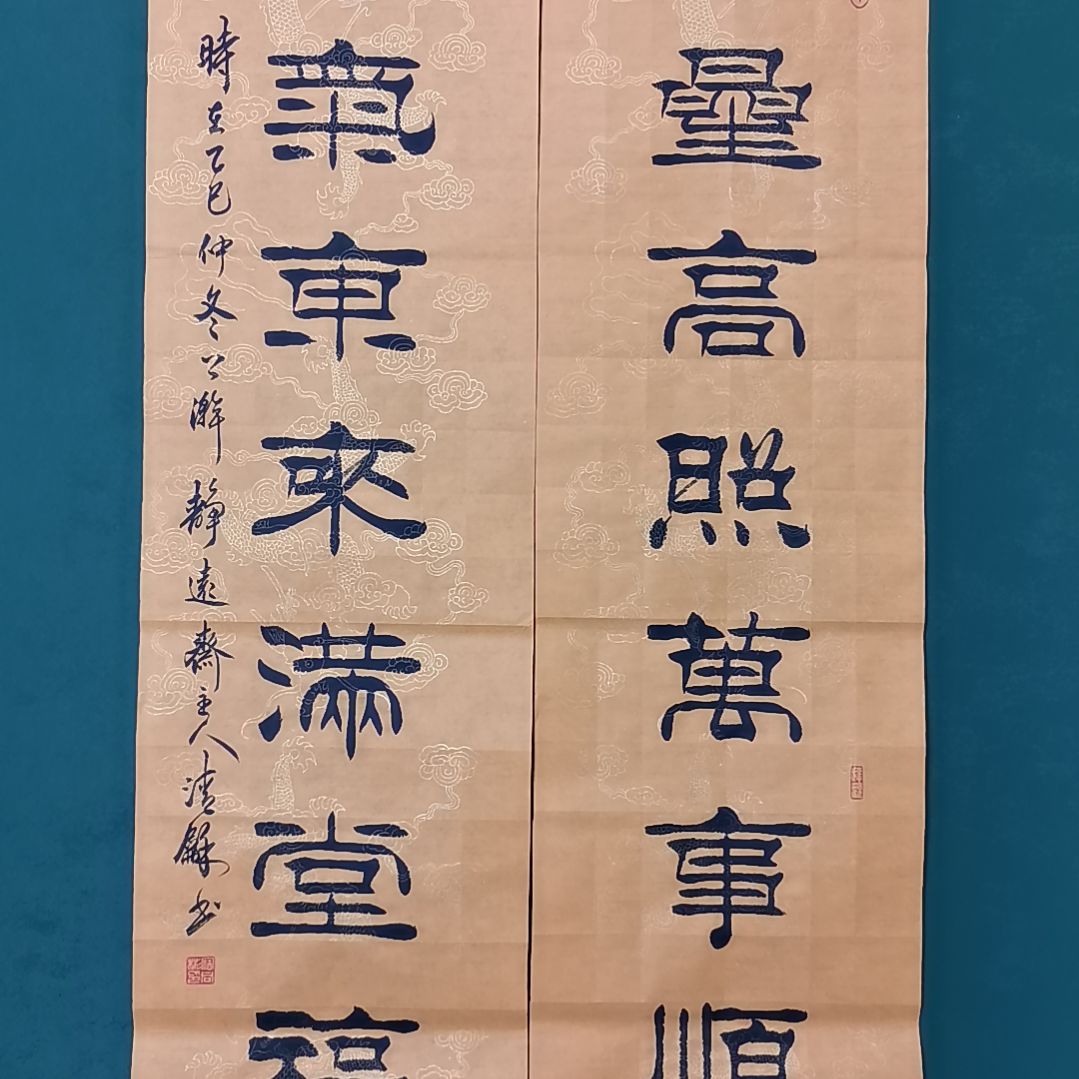 星高照萬事順
氣東來滿堂福
時在乙巳仲冬上澣靜遠齋主人清龢書